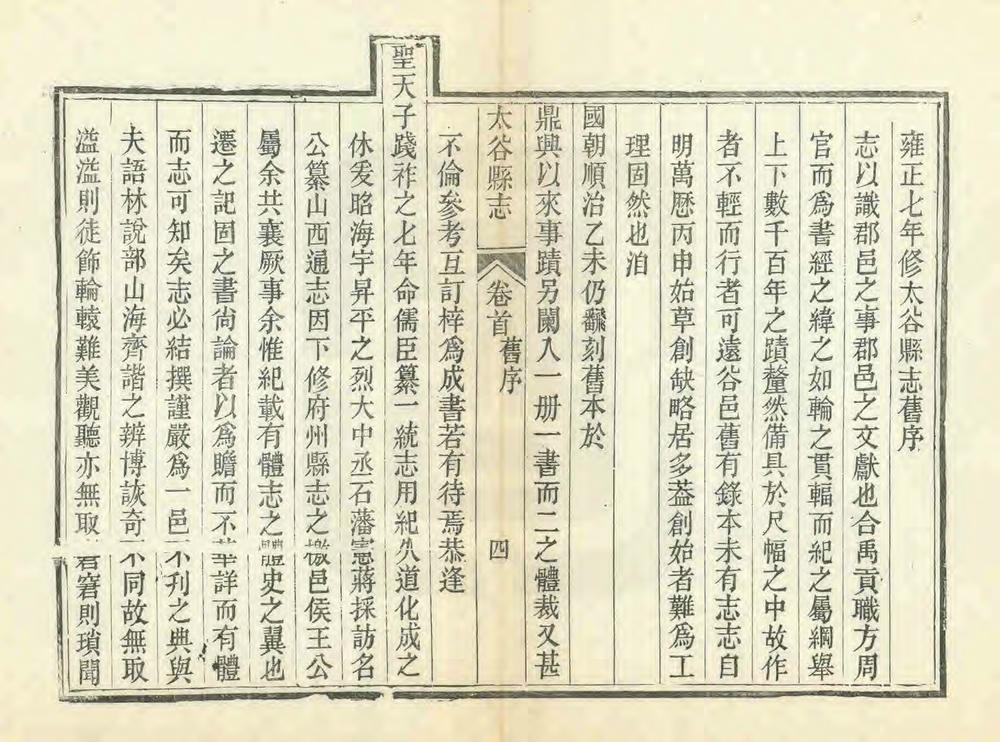 雍正七年修太谷縣志舊序
志以識郡邑之事郡邑之文獻也合禹貢職方周
官而爲書經之緯之如輪之貫輻而紀之屬綱舉
上下數千百年之蹟釐然備具於尺幅之中故作
者不輕而行者可遠谷邑舊有錄本未有志志自
明萬歷丙申始草創缺略居多葢創始者難爲工
理固然也洎
國朝順治乙未仍飜刻舊本於
鼎興以來事蹟另闌入一册一書而二之體裁又甚
太谷縣志 卷首 舊序 四
不倫參考互訂梓爲成書若有待焉恭逢
聖天子踐祚之七年命儒臣纂一統志用紀久道化成之
休爰昭海宇昇平之烈大中丞石藩憲蔣採訪名
公纂山西通志因下修府州縣志之檄邑侯王公
屬余共襄厥事余惟紀載有體志之體史之翼也
遷之記固之書尙論者以爲贍而不華詳而有體
而志可知矣志必結撰謹嚴爲一邑不刊之典與
夫語林說部山海齊諧之辨博詼奇不同故無取
濫濫則徒飾輪轅難美觀聽亦無取窘窘則瑣聞